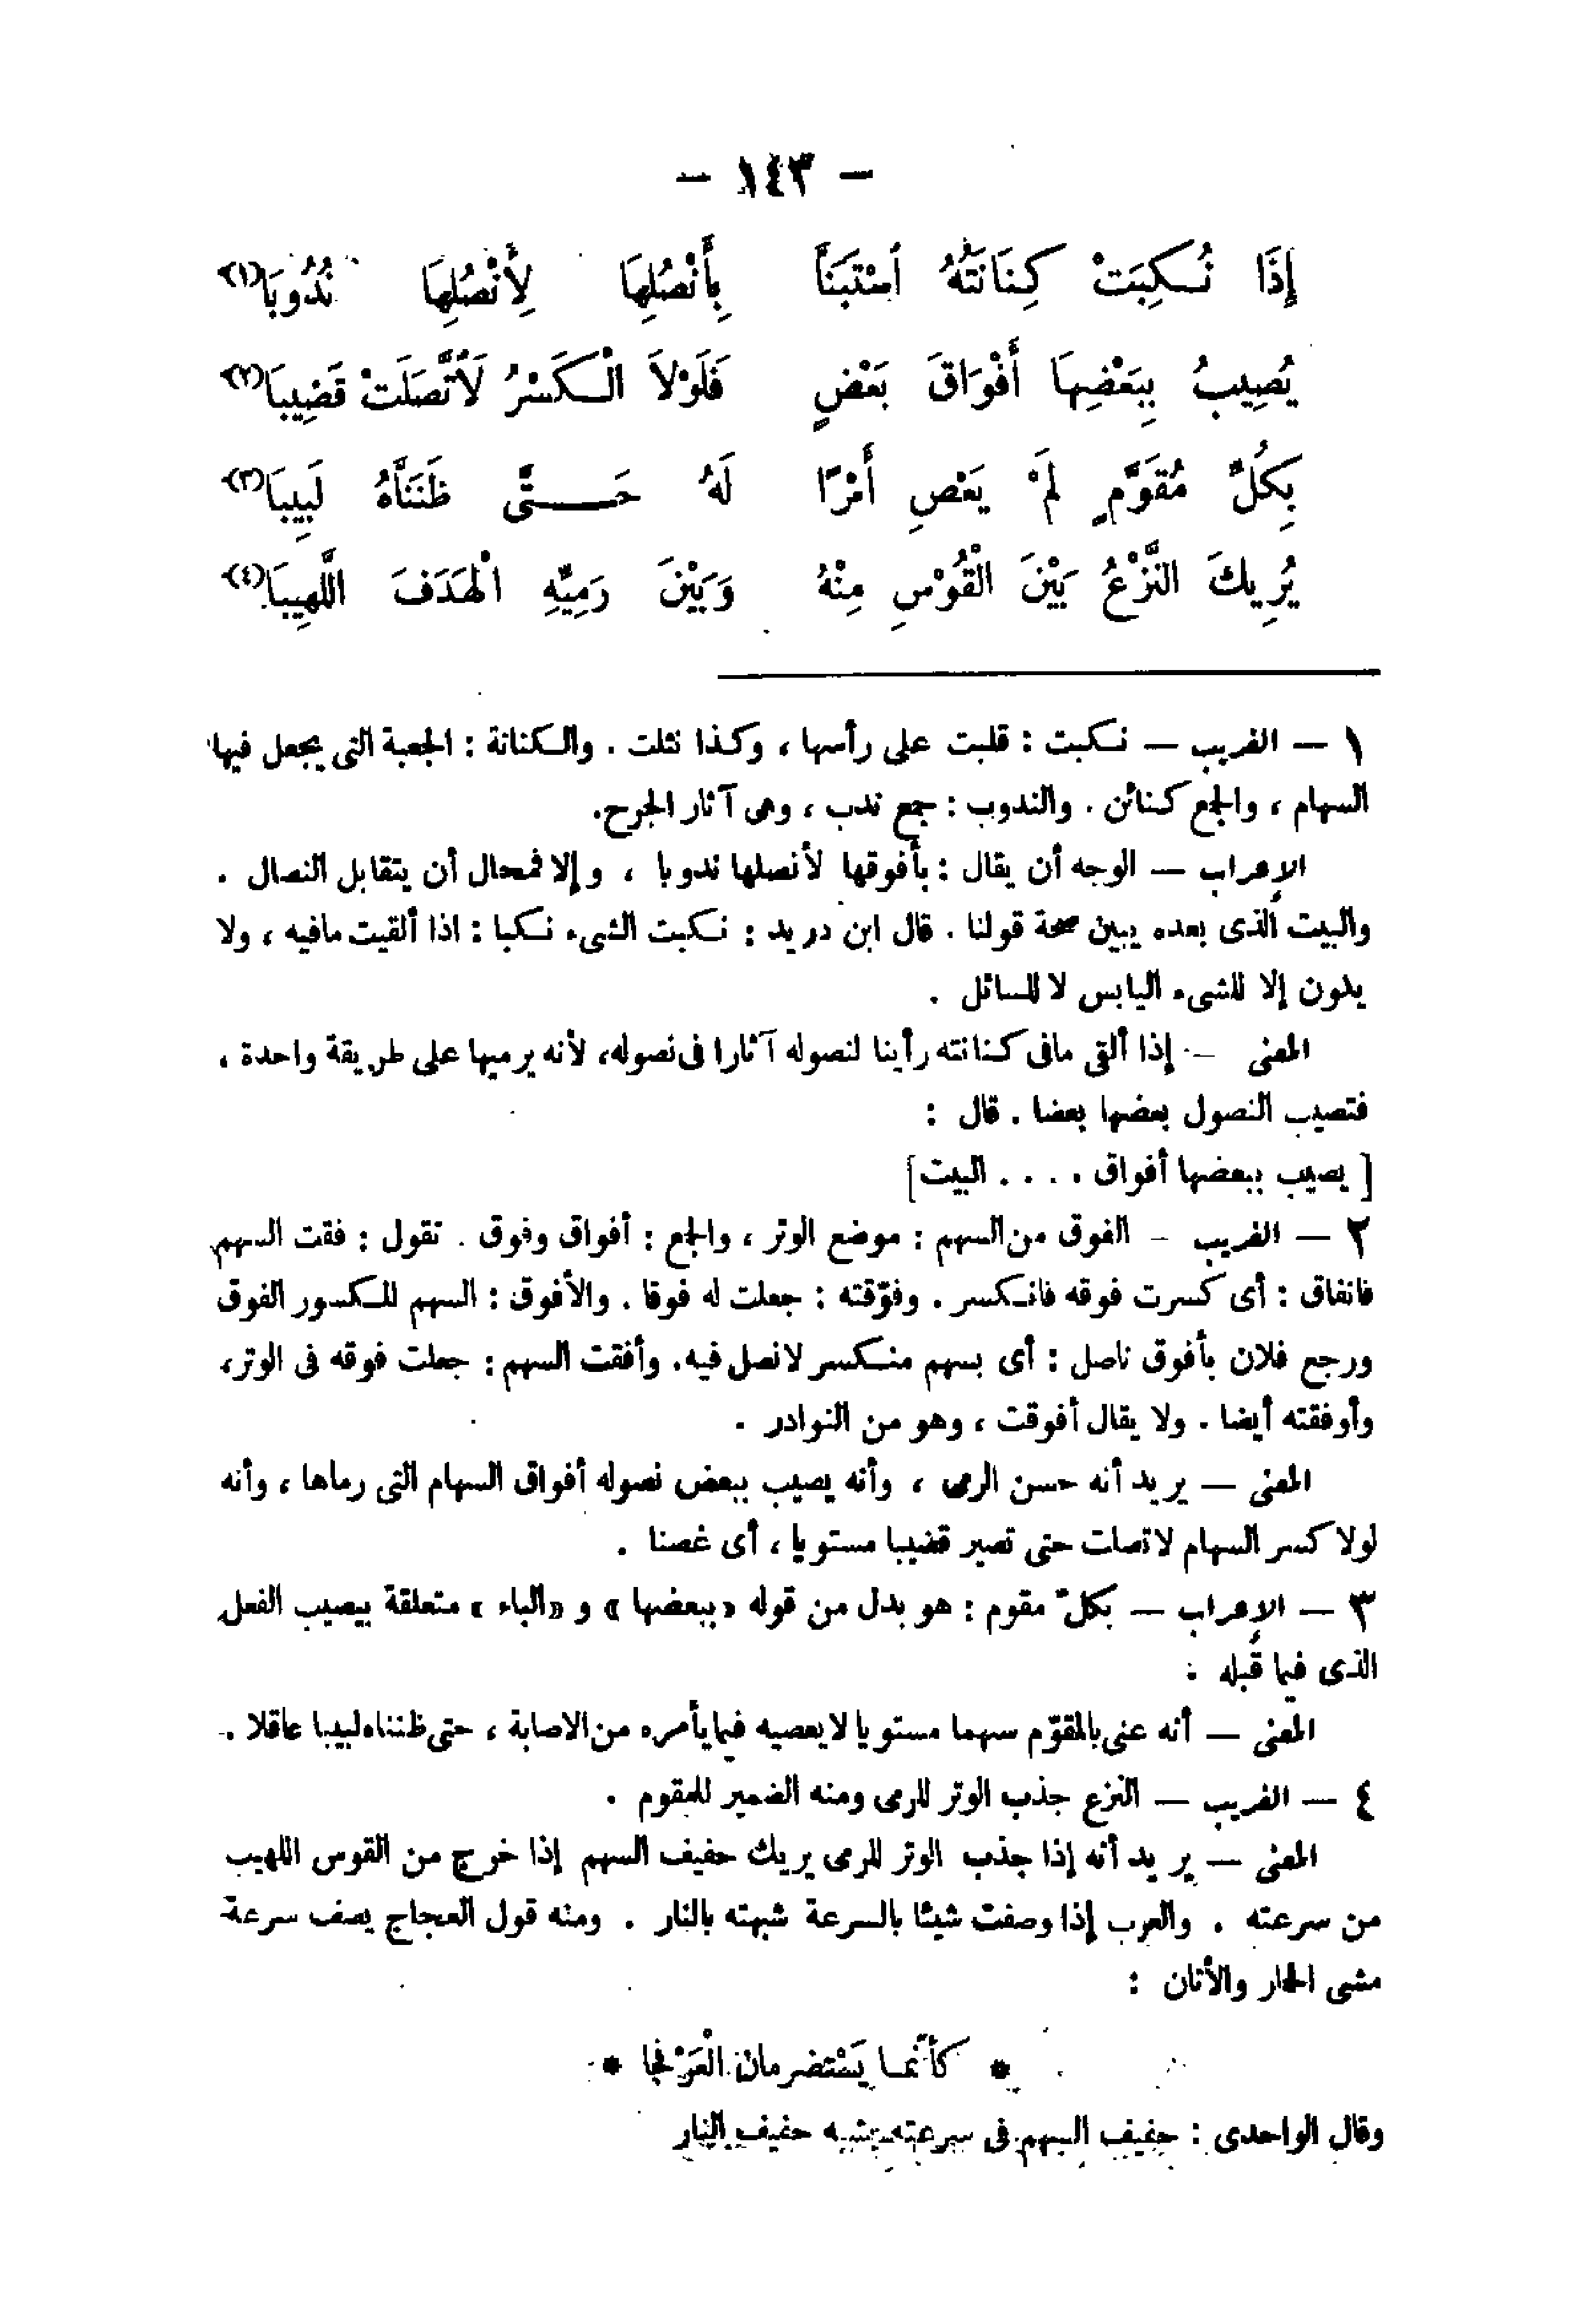 — ١٤٣ —
إِذَا نُكِبَتْ كِنَانَتُهُ اُسْتَبَنَّا بِأَنْصُلِهَا لِأَنْصُلِهَا نُدُوبَا(١)
يُصِيبُ بِبَعْضِهَا أَفْوَاقَ بَعْضٍ فَلَوْلاَ الْكَسْرُ لَاُتَّصَلَتْ قَضِيبَا(٢)
بِكُلِّ مُقَوَّمٍ لَمْ يَعْصِ أَمْرًا لَهُ حَتَّى ظَنَنَّاهُ لَبِيبَا(٣)
يُرِيكَ النَّزْعُ بَيْنَ الْقَوْسِ مِنْهُ وَبَيْنَ رَمِيِّهِ الْهَدَفَ اللَّهِيبَا(٤)
١ — الغريب — نكبت : قلبت على رأسها ، وكذا نثلت . والكنانة : الجعبة التى يجعل فيها
السهام ، والجمع كنائن . والندوب : جمع ندب ، وهى آثار الجرح.
الإعراب — الوجه أن يقال : بأفوقها لأنصلها ندوبا ، وإلا فمحال أن يتقابل النصال .
والبيت الذى بعده يبين صحة قولنا . قال ابن دريد : نكبت الشىء نكبا : اذا ألقيت مافيه ، ولا
يكون إلا للشىء اليابس لا للسائل .
المعنى — إذا ألقى مافى كنانته رأينا لنصوله آثارا فى نصوله، لأنه يرميها على طريقة واحدة ،
فتصيب النصول بعضها بعضا . قال :
[ يصيب ببعضها أفواق . . . . البيت]
٢ — الغريب — الفوق من السهم : موضع الوتر ، والجمع : أفواق وفوق . تقول : فقت السهم
فانفاق : أى كسرت فوقه فانكسر . وفوّقته : جعلت له فوقا . والأفوق : السهم المكسور الفوق
ورجع فلان بأفوق ناصل : أى بسهم منكسر لانصل فيه. وأفقت السهم : جعلت فوقه فى الوتر،
وأوفقته أيضا . ولا يقال أفوقت ، وهو من النوادر .
المعنى — يريد أنه حسن الرمى ، وأنه يصيب ببعض نصوله أفواق السهام التى رماها ، وأنه
لولا كسر السهام لاتصلت حتى تصير قضيبا مستويا ، أى غصنا .
٣ — الإعراب — بكلّ مقوم : هو بدل من قوله «ببعضها» و «الباء» متعلقة بيصيب الفعل
الذى فيما قبله :
المعنى — أنه عنى بالمقوّم سهما مستويا لايعصيه فيما يأمره من الاصابة ، حتى ظنناه لبيبا عاقلا .
٤ — الغريب — النزع جذب الوتر للرمى ومنه الضمير للمقوم .
المعنى — يريد أنه إذا جذب الوتر للرمى يريك حفيف السهم إذا خرج من القوس اللهيب
من سرعته . والعرب إذا وصفت شيئا بالسرعة شبهته بالنار . ومنه قول العجاج يصف سرعة
مشى الحمار والأتان :
* كأنّما يَسْتضرمان الْعَرْفجا *
وقال الواحدى : حفيف السهم فى سرعته يشبه حفيف النار